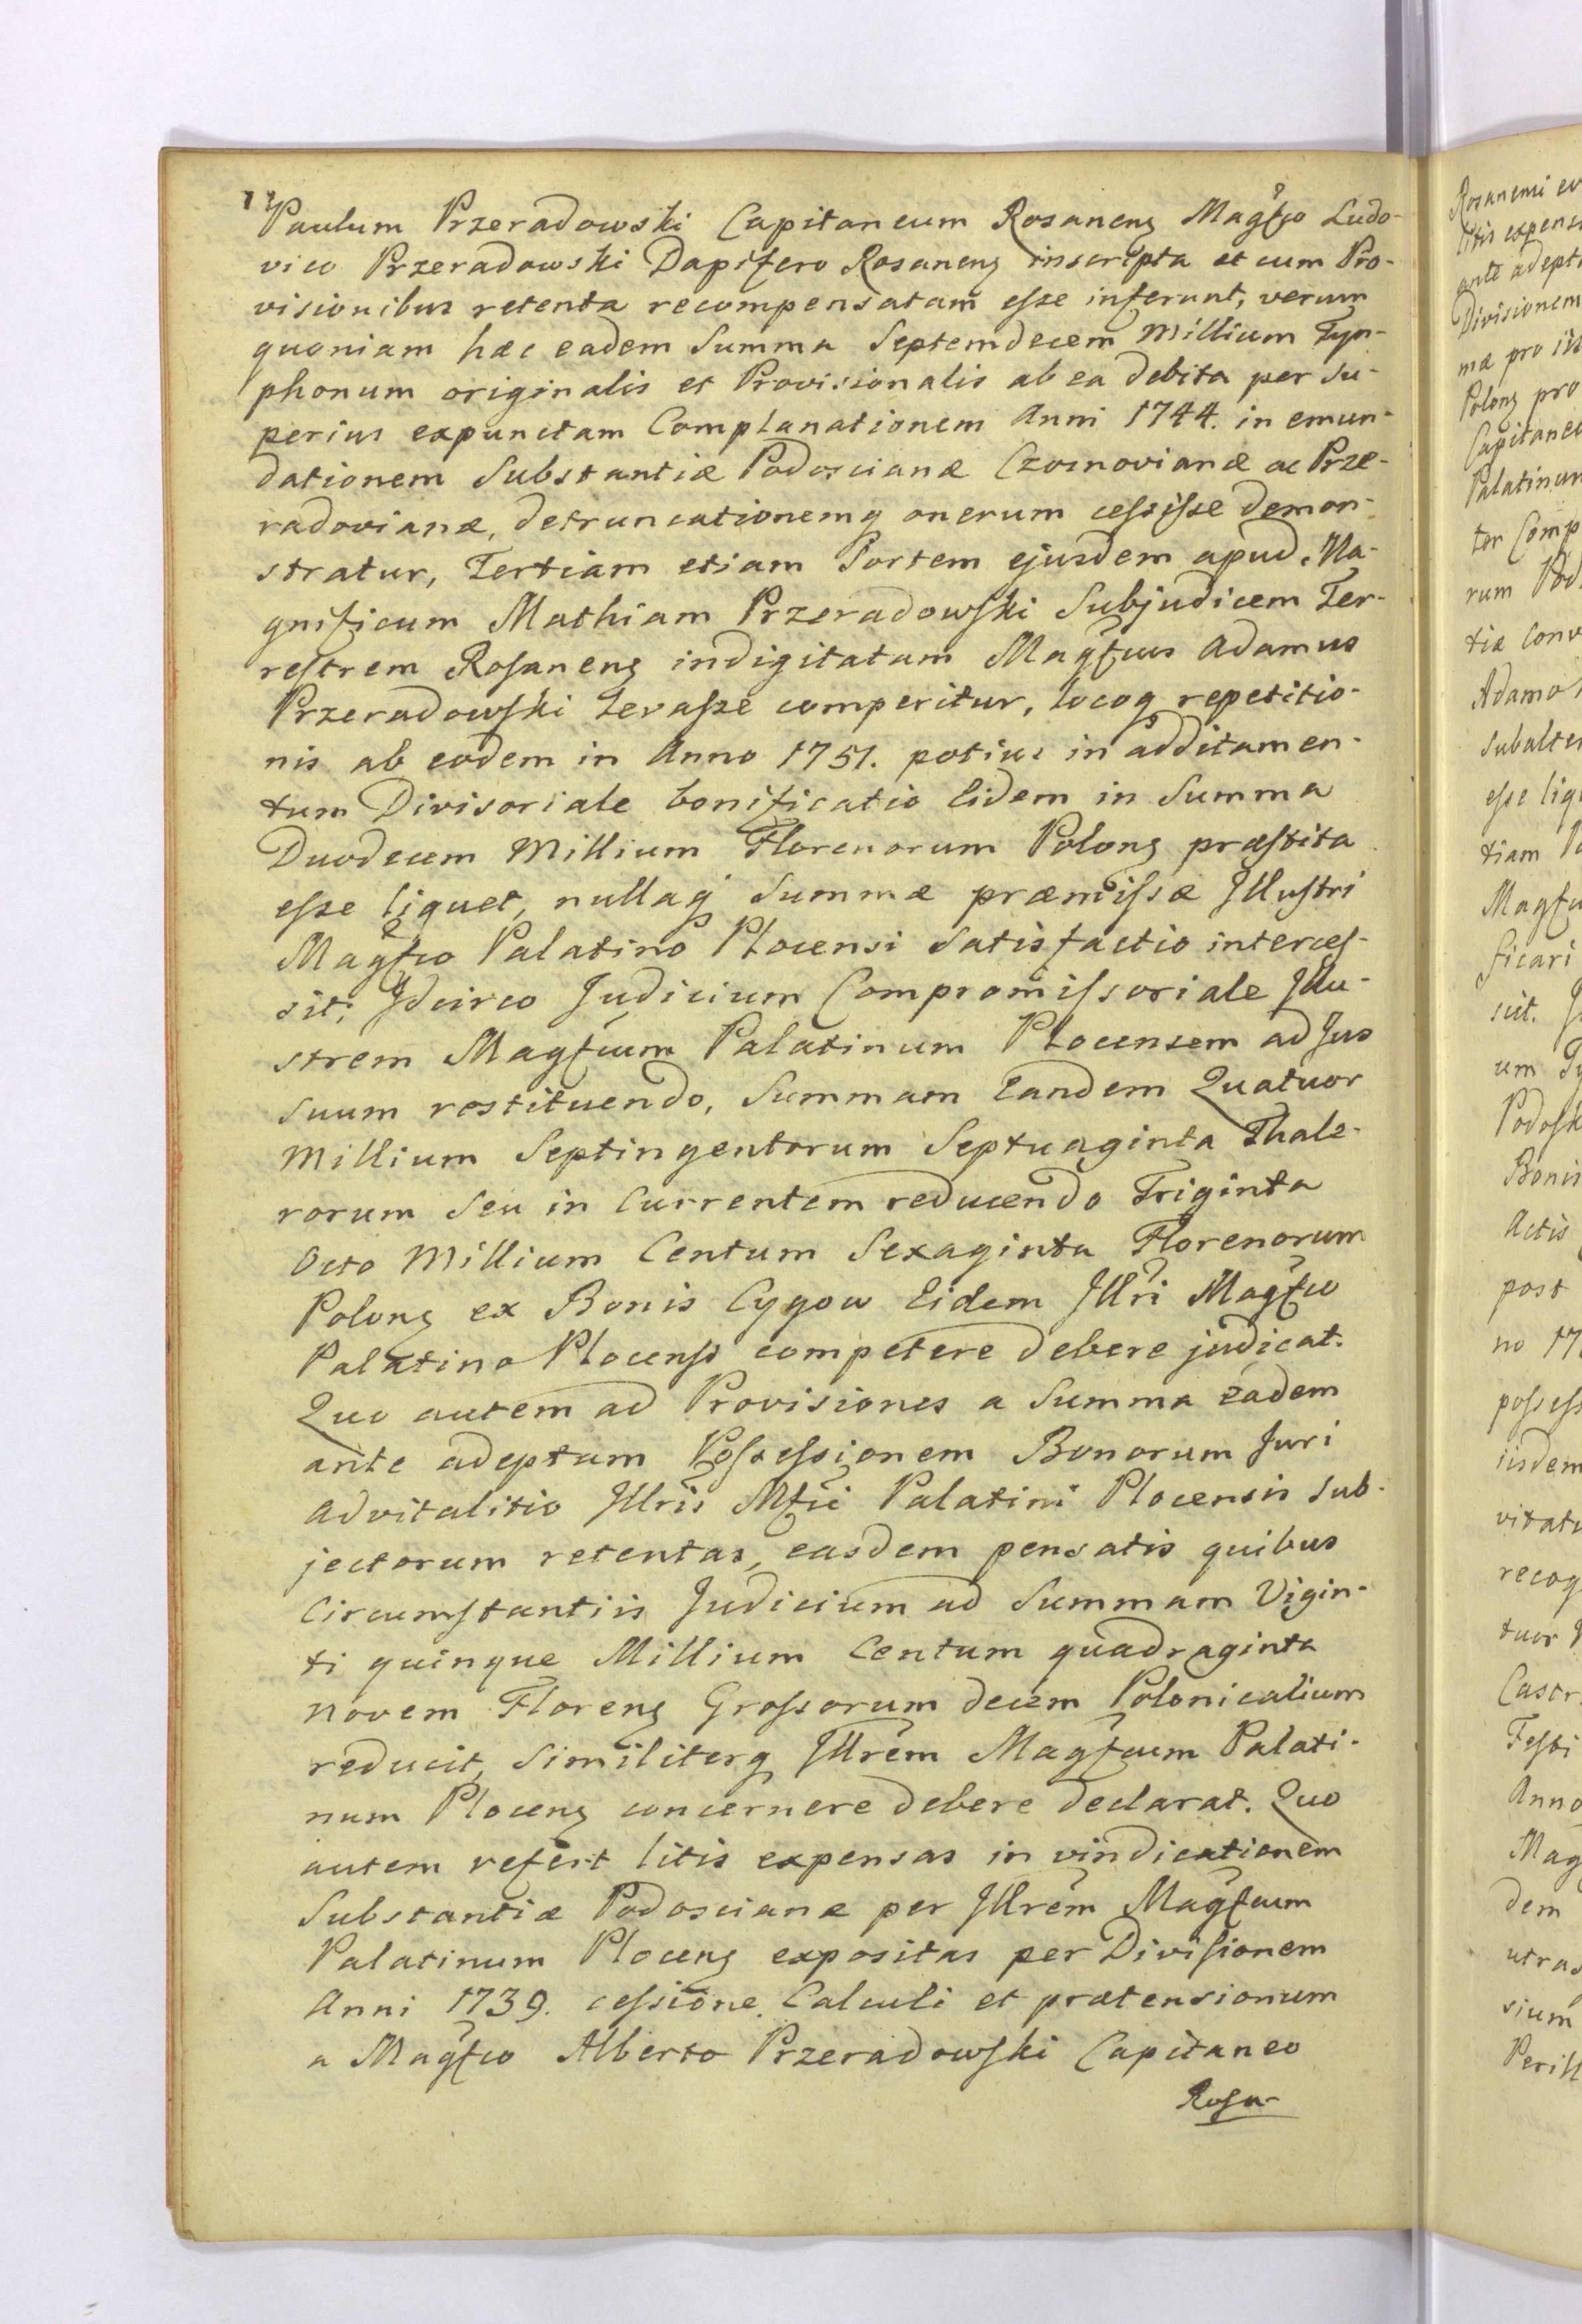 Paulum Przeradowski Capitaneum Rosaneng Magfco Ludo-
vico Przeradowski Dapifero Rosaneng inscripta et cum Pro-
visionibus retenta recompensatam esse inferunt, verum
quoniam hæc eadem Summa Septemdecem Millium Tyn-
phonum originalis et Provisionalis ab ea debita per su-
perius expunctam Complanationem Anni 1744. in emun-
dationem Substantiæ Podoscianæ Czosnovianæ ac Prze-
radovianæ, detruncationemq onerum cessisse demon-
stratur, Tertiam etiam Sortem ejusdem apud Ma-
gnificum Mathiam Przeradowski Subjudicem Ter-
restrem Rosaneng indigitatam Magfcus Adamus
Przeradowski levasse comperitur, locoq repetitio-
nis ab eodem in Anno 1751. potius in additamen-
tum Divisoriale bonificatio Eidem in Summa
Duodecem Millium Florenorum Polong præstita
esse liquet, nullaq Summæ præmissæ Illustri
Magfco Palatino Plocensi Satisfactio interces-
sit; Idcirco Judicium Compromissoriale Illu-
strem Magfcum Palatinum Plocensem ad Jus
suum restituendo, Summam Eandem Quatuor
Millium Septingentorum Septuaginta Thale-
rorum seu in Currentem reducendo Triginta
Octo Millium Centum Sexaginta Florenorum
Polong ex Bonis Cygow Eidem Illri Magfco
Palatino Plocensi competere debere judicat.
Quo autem ad Provisiones a Summa eadem
ante adeptam Possessionem Bonorum Juri
Advitalitio Illris Mfci Palatini Plocensis sub-
jectorum retentas, easdem pensatis quibus
Circumstantiis Judicium ad Summam Vigin-
ti quinque Millium Centum quadraginta
Novem Floreng Grossorum decem Polonicalium
reducit, Similiterq Illrem Magfcum Palati-
num Ploceng concernere debere declarat. Quo
autem refert litis expensas in vindicationem
Substantiæ Podoscianæ per Illrem Magfcum
Palatinum Ploceng expositas per Divisionem
Anni 1739. cessione Calculi et prætensionum
a Magfco Alberto Przeradowski Capitaneo
Rosa-